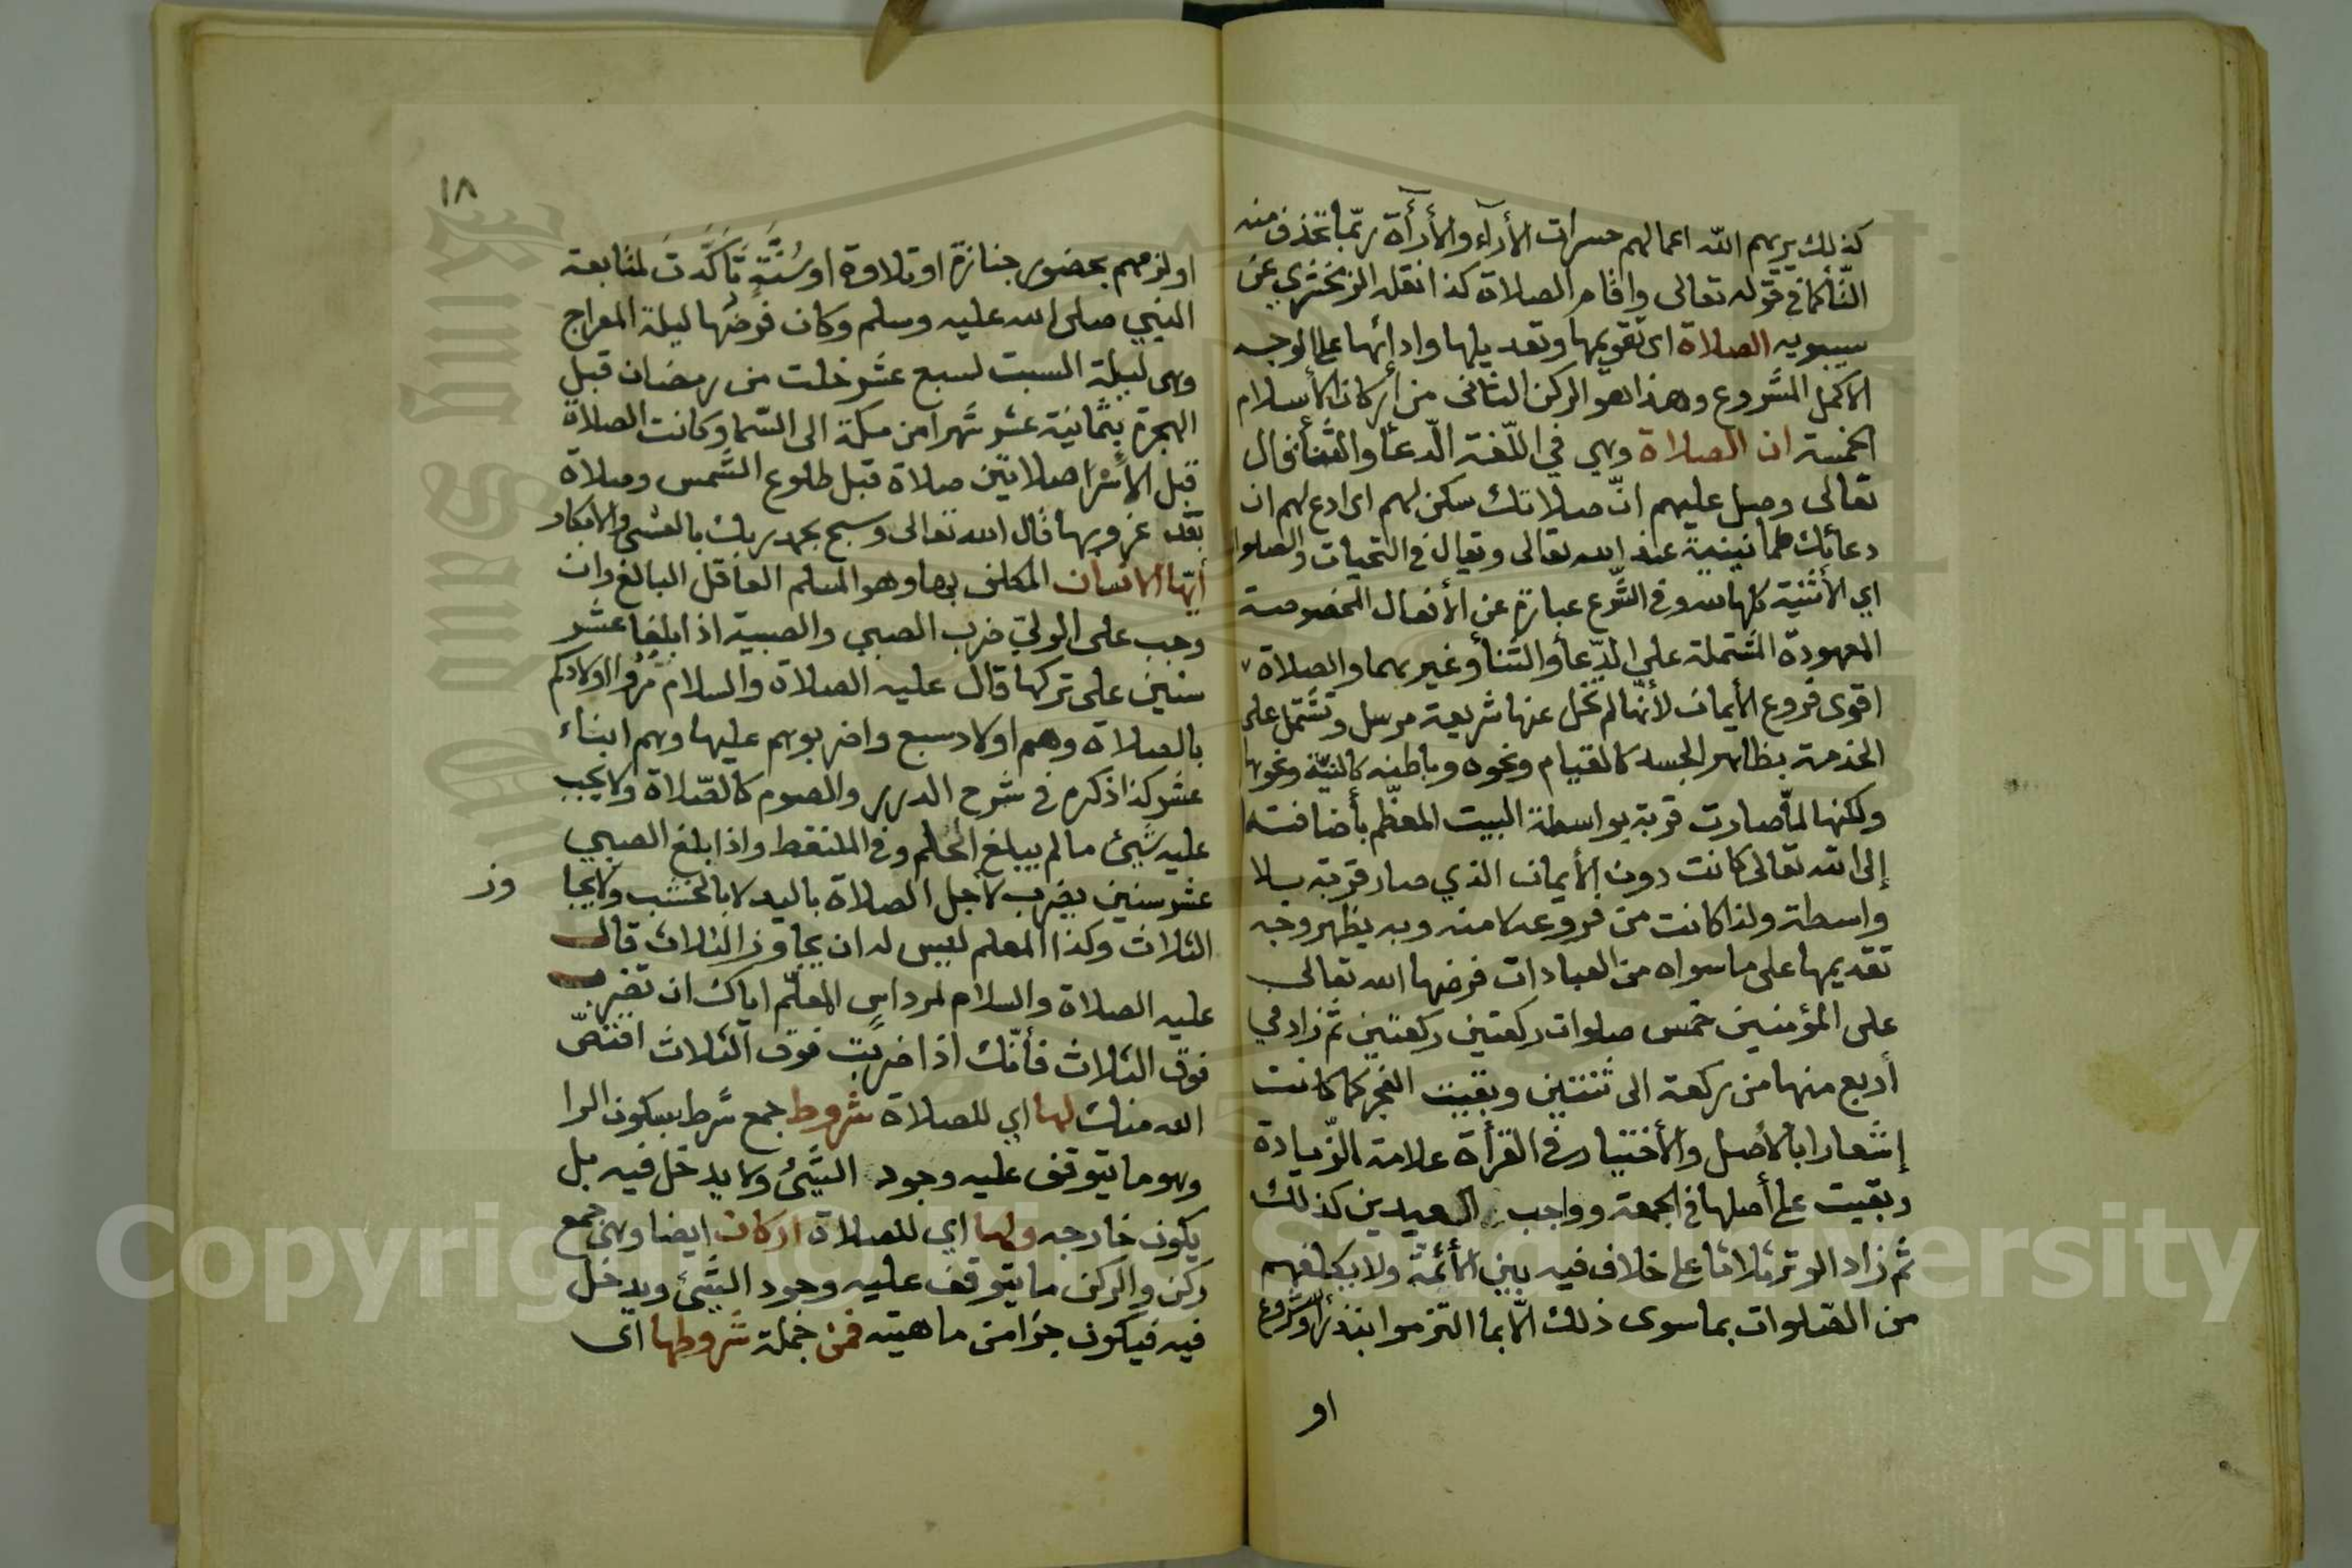 كذلك يريهم الله اعمالهم حسرات الأرآء والأرأة ربّما تحذف منه
التّأ كما في قوله تعالى واقام الصلاة كذا نقله الزمخشري عن
سيبويه الصلاة اى تقويمها وتعديلها وادائها على الوجه
الاكمل المشروع وهذا هو الركن الثانى من أركان الأسلام
الخمسة ان الصلاة وهي في اللّغة الدّعأ والثّنأ قال
تعالى وصل عليهم انّ صلاتك سكن لهم اى ادع لهم ان
دعائك طمانينية عند الله تعالى ويقال في التحيات والصلوا
اي الأثنية كلها لله وفي الشّرع عبارة عن الأفعال المخصوصة
المعهودة المشتملة على الدّعأ والثّنأ وغيرهما والصلاة
اقوى فروع الأيمان لأنّها لم تخل عنها شريعة مرسل وتشتمل على
الخدمة بظاهر الجسد كالقيام ونحوه وباطنه كالنيّة ونحوها
ولكنها لمّا صارت قربة بواسطة البيت المعظّم بأضافته
إلى الله تعالى كانت دون الأيمان الذي صار قربة بلا
واسطة ولذا كانت من فروعه لا منه وبه يظهر وجه
تقديمها على ما سواه من العبادات فرضها الله تعالى
على المؤمنين خمس صلوات ركعتين ركعتين ثم زاد في
أربع منها من ركعة الى ثنتين وبقيت الفجر كما كانت
إشعارا بالأصل والأختيار في القرأة علامة الزّيادة
وبقيت على أصلها في الجمعة وواجب العيدين كذلك
ثم زاد الوتر ثلاثا على خلاف فيه بين الأئمّة ولا يكلفهم
من الصّلوات بما سوى ذلك الّا بما التزموا بنذر او شروع
او
١٨
او لزمهم بحضور جنازة او تلاوة او سُنَّةٍ تَأَكَّدَتَ لمتابعة
النبي صلى الله عليه وسلم وكان فرضُها ليلة المعراج
وهى ليلة السبت لسبع عشر خلت من رمضان قبل
الهجرة بثمانية عشر شهرا من مكة الى السّما وكانت الصلاة
قبل الأسْرا صلاتين صلاة قبل طلوع الشمس وصلاة
بعد غروبها قال الله تعالى وسبح بحمد ربك بالعشى والابكار
أيّها الانسان المكلف بها وهو المسلم العاقل البالغ وان
وجب على الولىّ ضرب الصبي والصبية اذا بلغا عشر
سنين على تركها قال عليه الصلاة والسلام مُرُوا اولادكم
بالصلاة وهم اولاد سبع واضربوهم عليها وهم ابناء
عشر كذا ذكره في شرح الدرر والصوم كالصّلاة ولا يجب
عليه شيئ ما لم يبلغ الحُلم وفي الملتقط واذا بلغ الصبي
عشر سنين يضرب لاجل الصلاة باليد لا بالخشب ولا يجا وز
الثلاث وكذا المعلم ليس له ان يجاوز الثلاث قال
عليه الصلاة والسلام لمرداسٍ المعلّم اياك ان تضرب
فوق الثلاث فأنّك اذا ضربت فوق الثلاث اقتصّ
الله منك لها اي للصلاة شروط جمع شرط بسكون الرا
وهو ما يتوقف عليه وجود الشّيئ ولا يدخل فيه بل
يكون خارجه ولها اي للصلاة اركان ايضا وهى جمع
ركن والركن ما يتوقف عليه وجود الشّيئ ويدخل
فيه فيكون جزا من ماهيته فمن جملة شروطها اى
Copyright © King Saud University